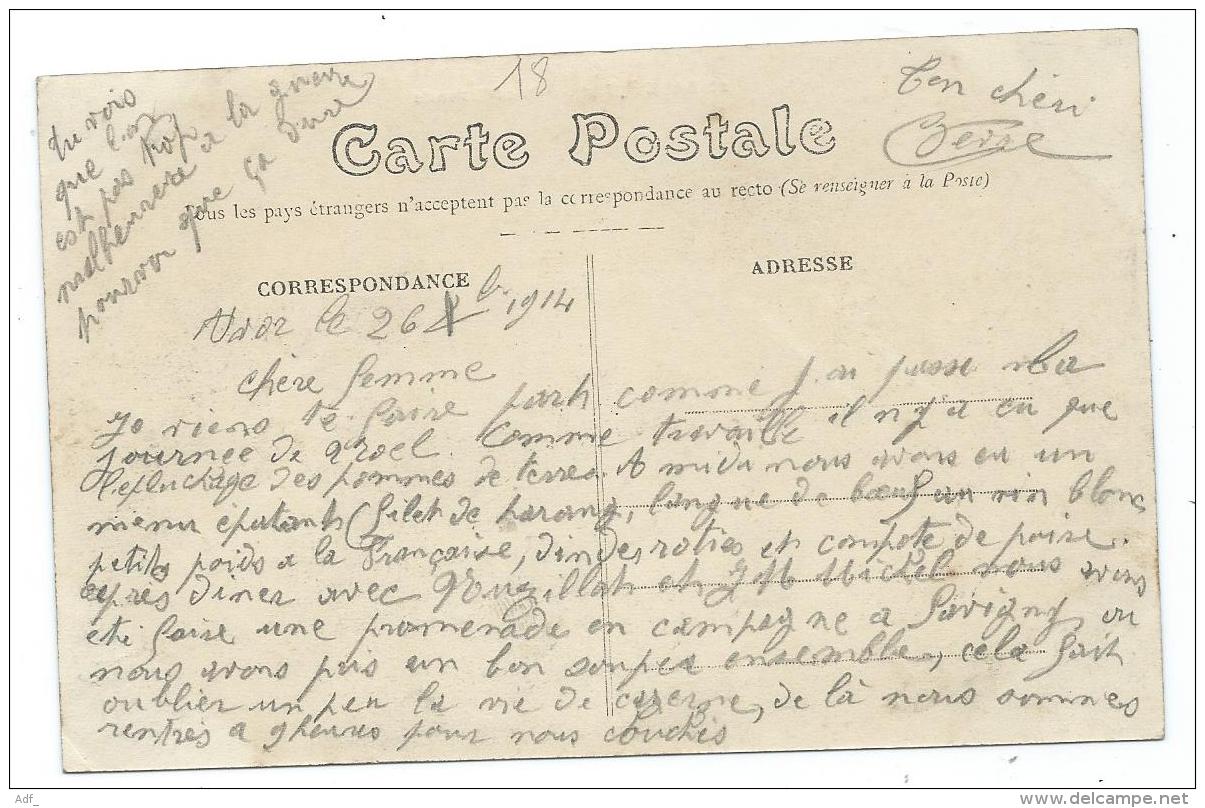 tu vois
que l'on
est pas trop
malheureux a la guerre
pourvu que ça dure
18
Ton chéri
Carte Postale
Tous les pays étrangers n'acceptent pas la correspondance au recto (Se renseigner à la Poste)
CORRESPONDANCE
ADRESSE
le 26 Xb 1914
chère femme
Je viens te faire part comme j'ai passé ma
journée de Noel. Comme travaille il n'y a eu que
l'epluchage des pommes de terres. A midi nous avons eu un
menu épatant (filet de hareng, langue de bœuf au vin blanc
petits poids a la Française, dindes roties et compote de poire.
apres diner avec et nous avons
eté faire une promenade en campagne a Savigny, ou
nous avons pris un bon souper ensemble, cela fait
oublier un peu la vie de caserne, de là nous sommes
rentrés a 9 heures pour nous couchés
Adf_
delcampe.net